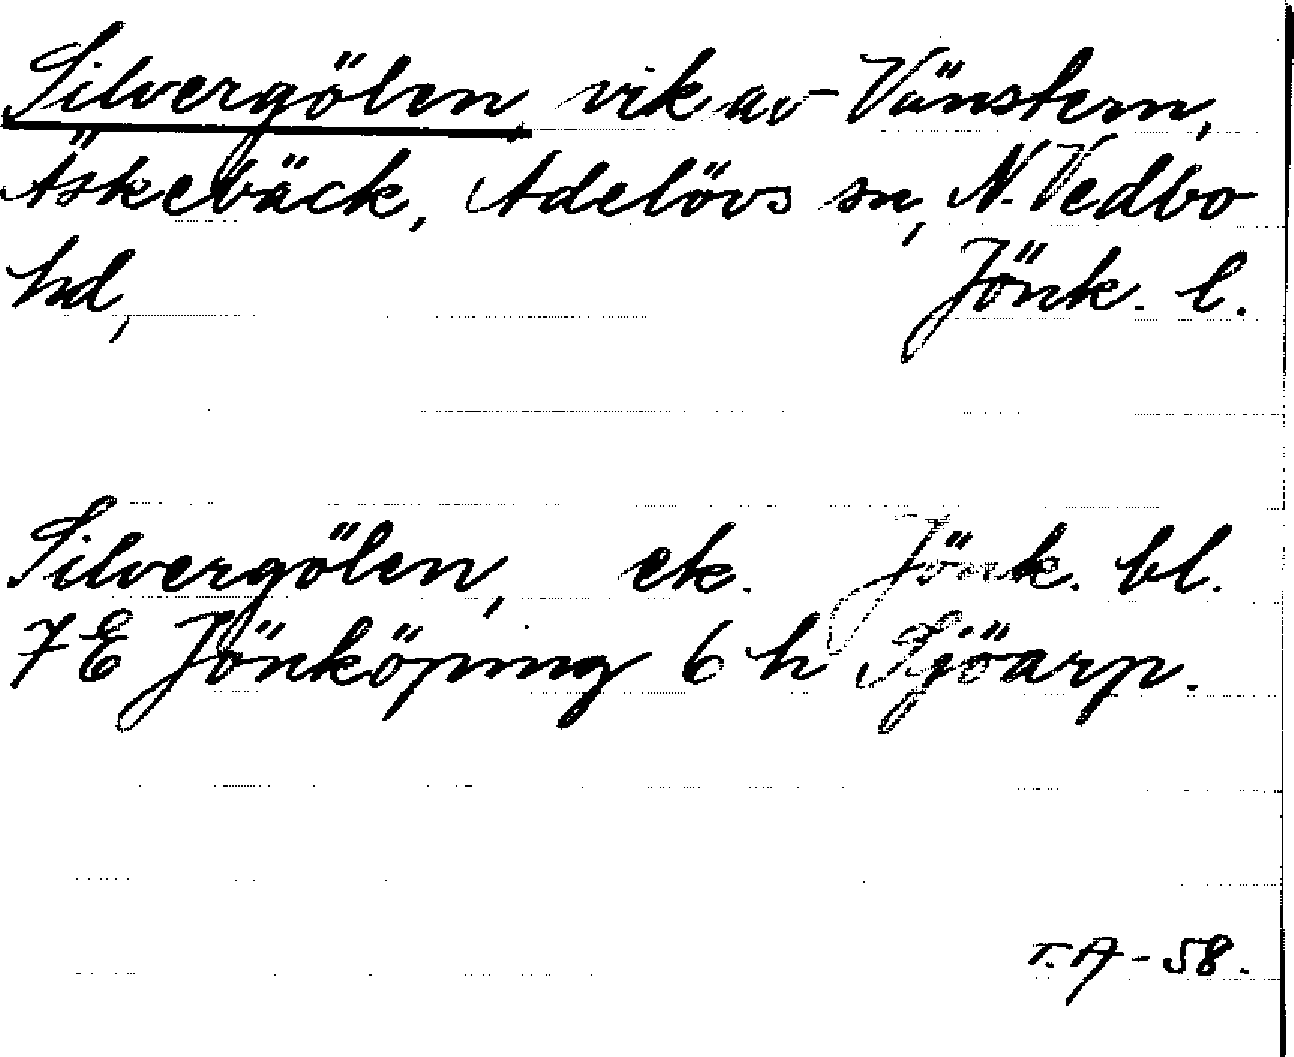 Silvergölen, vik av Vänstern,
Äskebäck, Adelövs sn, N. Vedbo
hd, Jönk. l.
Silvergölen, ek. Jönk. bl.
7 E Jönköping 6 h Sjöarp.
T. A - 58.